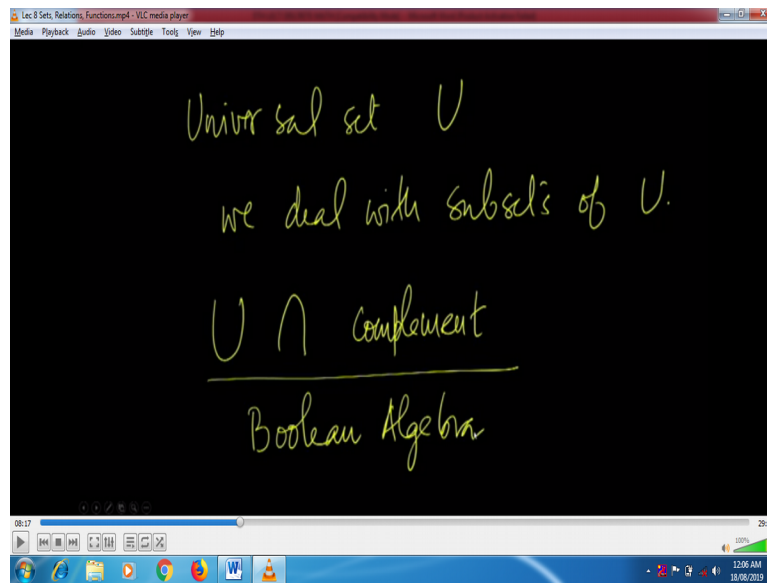 Lec 8 Sets, Relations, Functions.mp4 - VLC media player
Media Playback Audio Video Subtitle Tools View Help
Universal set U
we deal with subsets of U.
∪ ∩ complement
Boolean Algebra
08:17
29:
100%
12:06 AM
18/08/2019